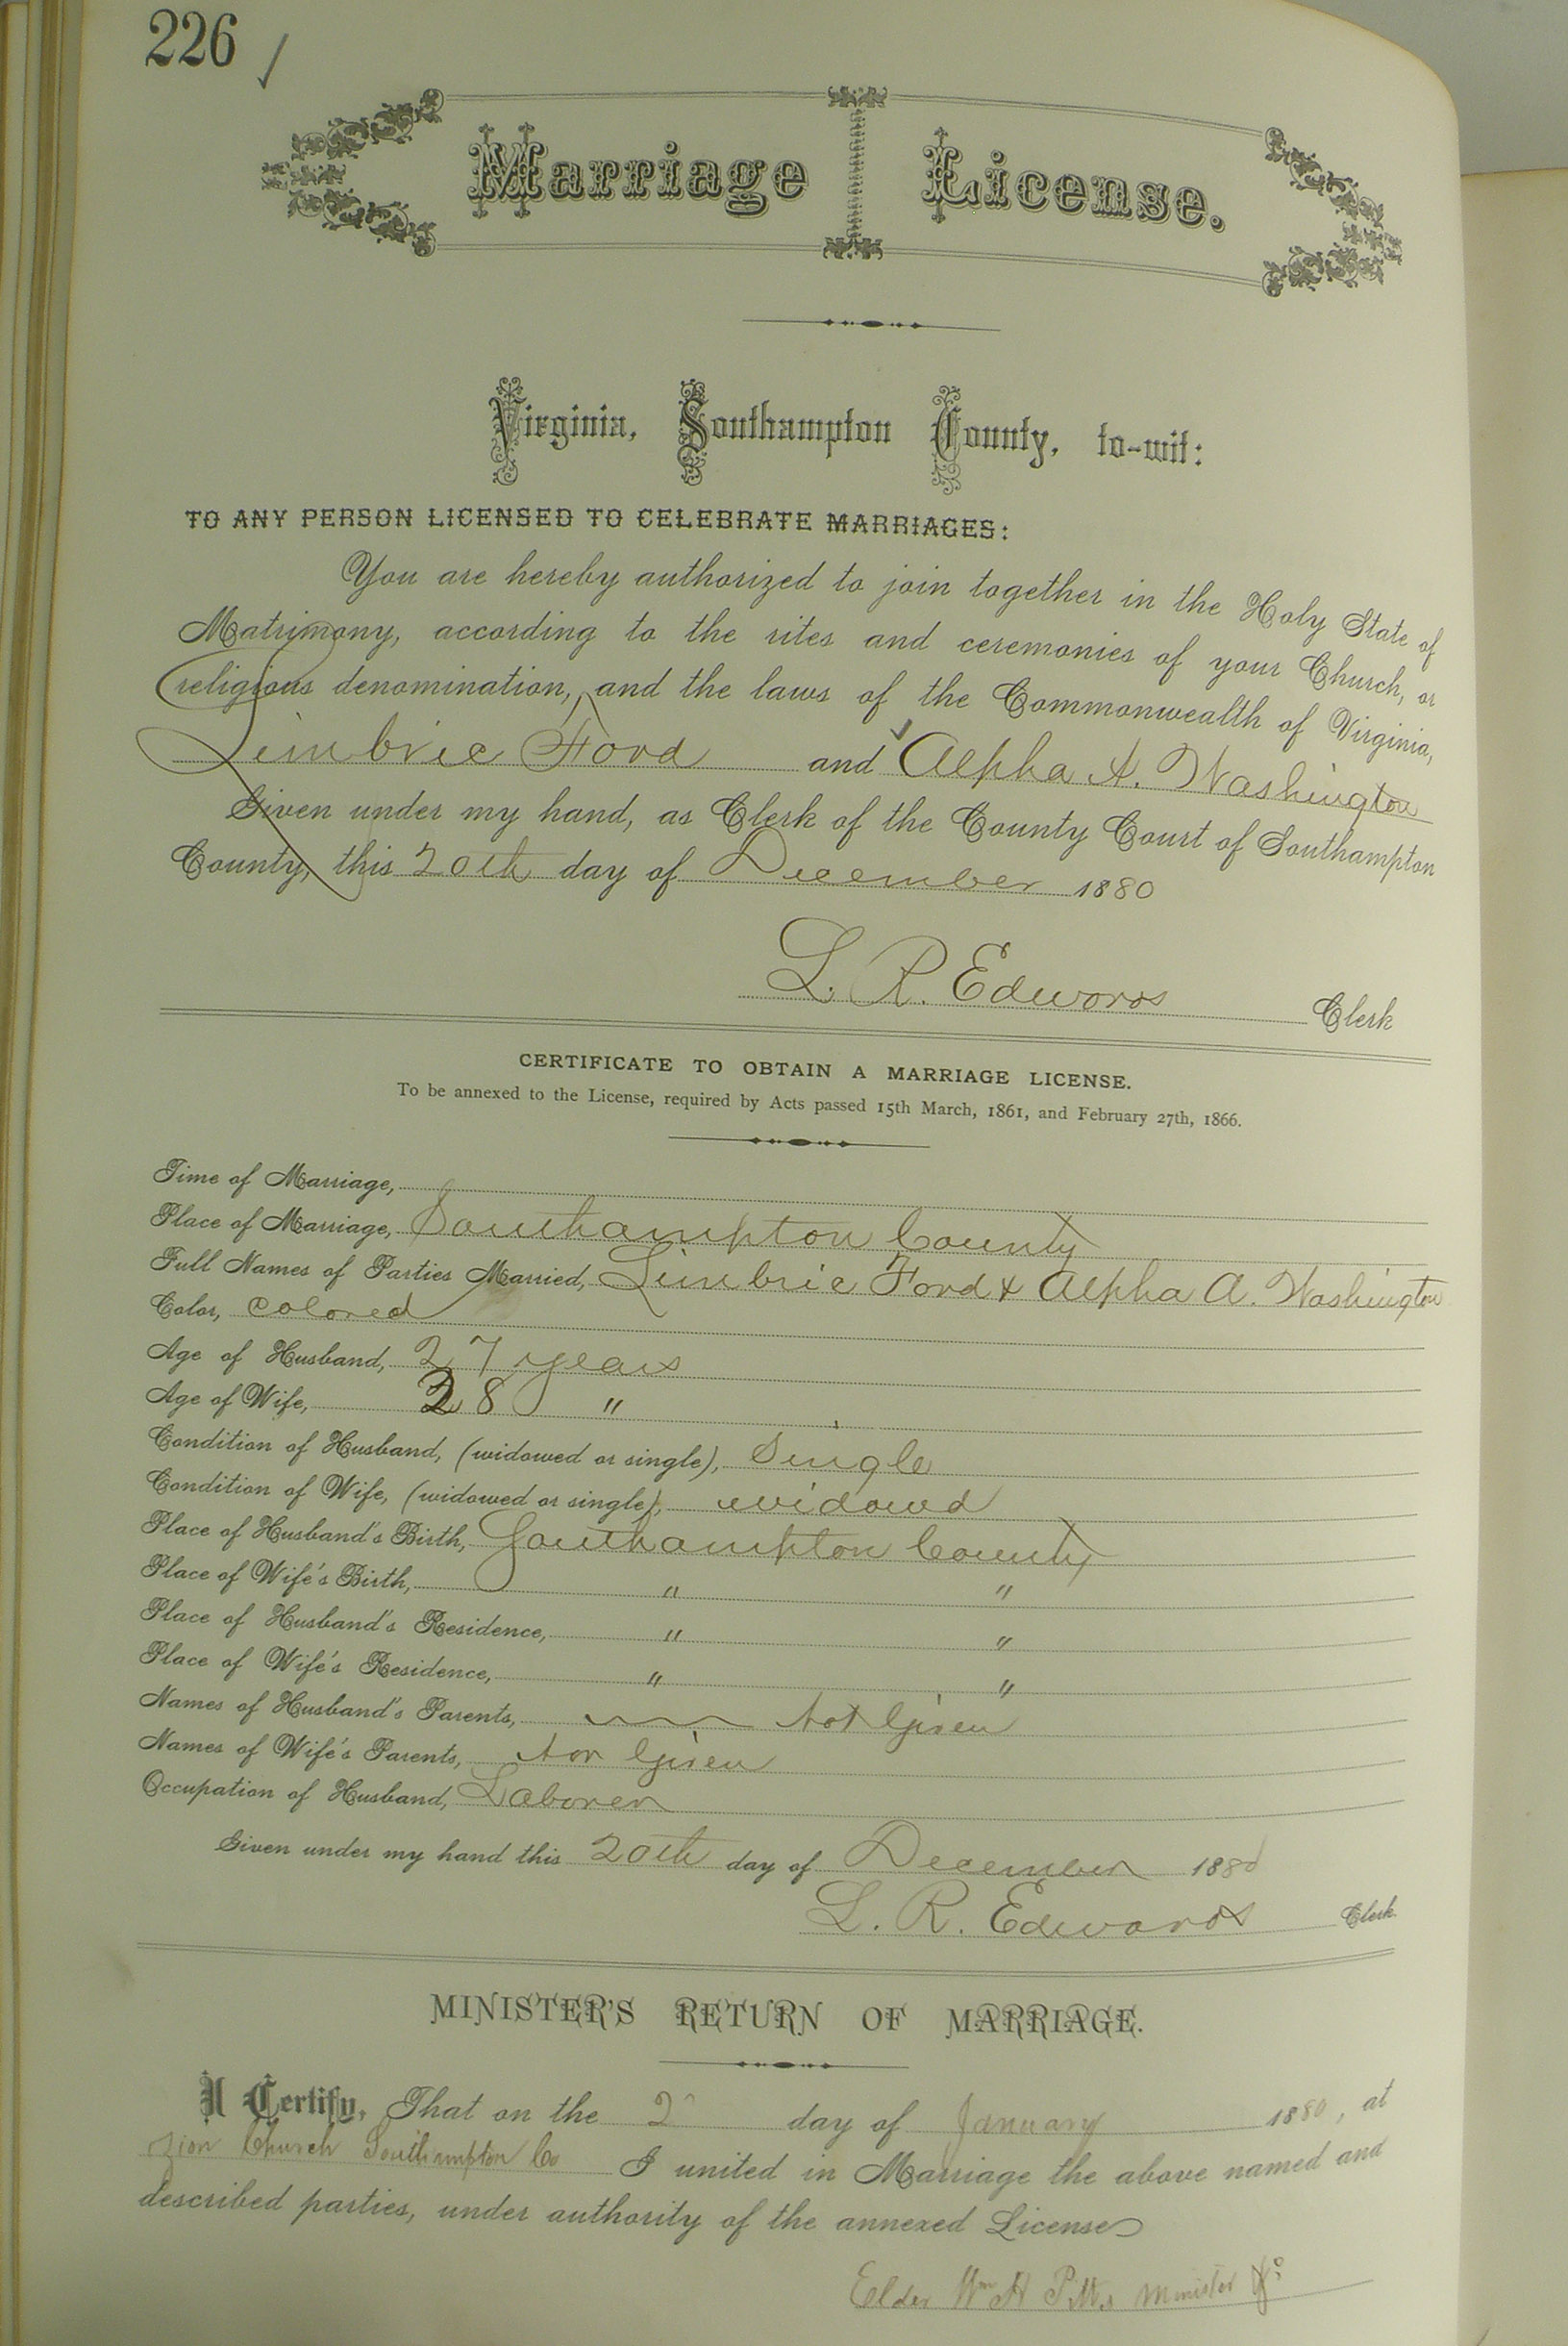 226
Marriage License.
Virginia, Southampton County, to-wit:
TO ANY PERSON LICENSED TO CELEBRATE MARRIAGES:
You are hereby authorized to join together in the Holy State of
Matrimony, according to the rites and ceremonies of your Church, or
religious denomination, and the laws of the Commonwealth of Virginia,
Limbric Ford and Alpha A. Washington
Given under my hand, as Clerk of the County Court of Southampton
County, this 20th day of December 1880
L. R. Edwards Clerk
CERTIFICATE TO OBTAIN A MARRIAGE LICENSE.
To be annexed to the License, required by Acts passed 15th March, 1861, and February 27th, 1866.
Time of Marriage,
Place of Marriage, Southampton County
Full Names of Parties Married, Limbric Ford & Alpha A. Washington
Color, colored
Age of Husband, 27 years
Age of Wife, 28 "
Condition of Husband, (widowed or single), Single
Condition of Wife, (widowed or single), widowed
Place of Husband's Birth, Southampton County
Place of Wife's Birth, " "
Place of Husband's Residence, " "
Place of Wife's Residence, " "
Names of Husband's Parents, Not Given
Names of Wife's Parents, Not Given
Occupation of Husband, Laborer
Given under my hand this 20th day of December 1880
L. R. Edwards Clerk
MINISTER'S RETURN OF MARRIAGE.
I Certify, That on the 2 day of January 1880, at
Zion Church Southampton Co I united in Marriage the above named and
described parties, under authority of the annexed License
Elder Wm H Pitts Minister